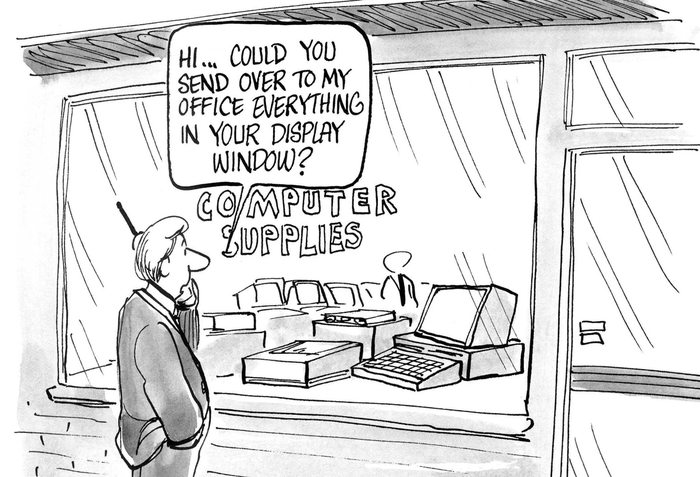 HI... COULD YOU
SEND OVER TO MY
OFFICE EVERYTHING
IN YOUR DISPLAY
WINDOW?
COMPUTER
SUPPLIES